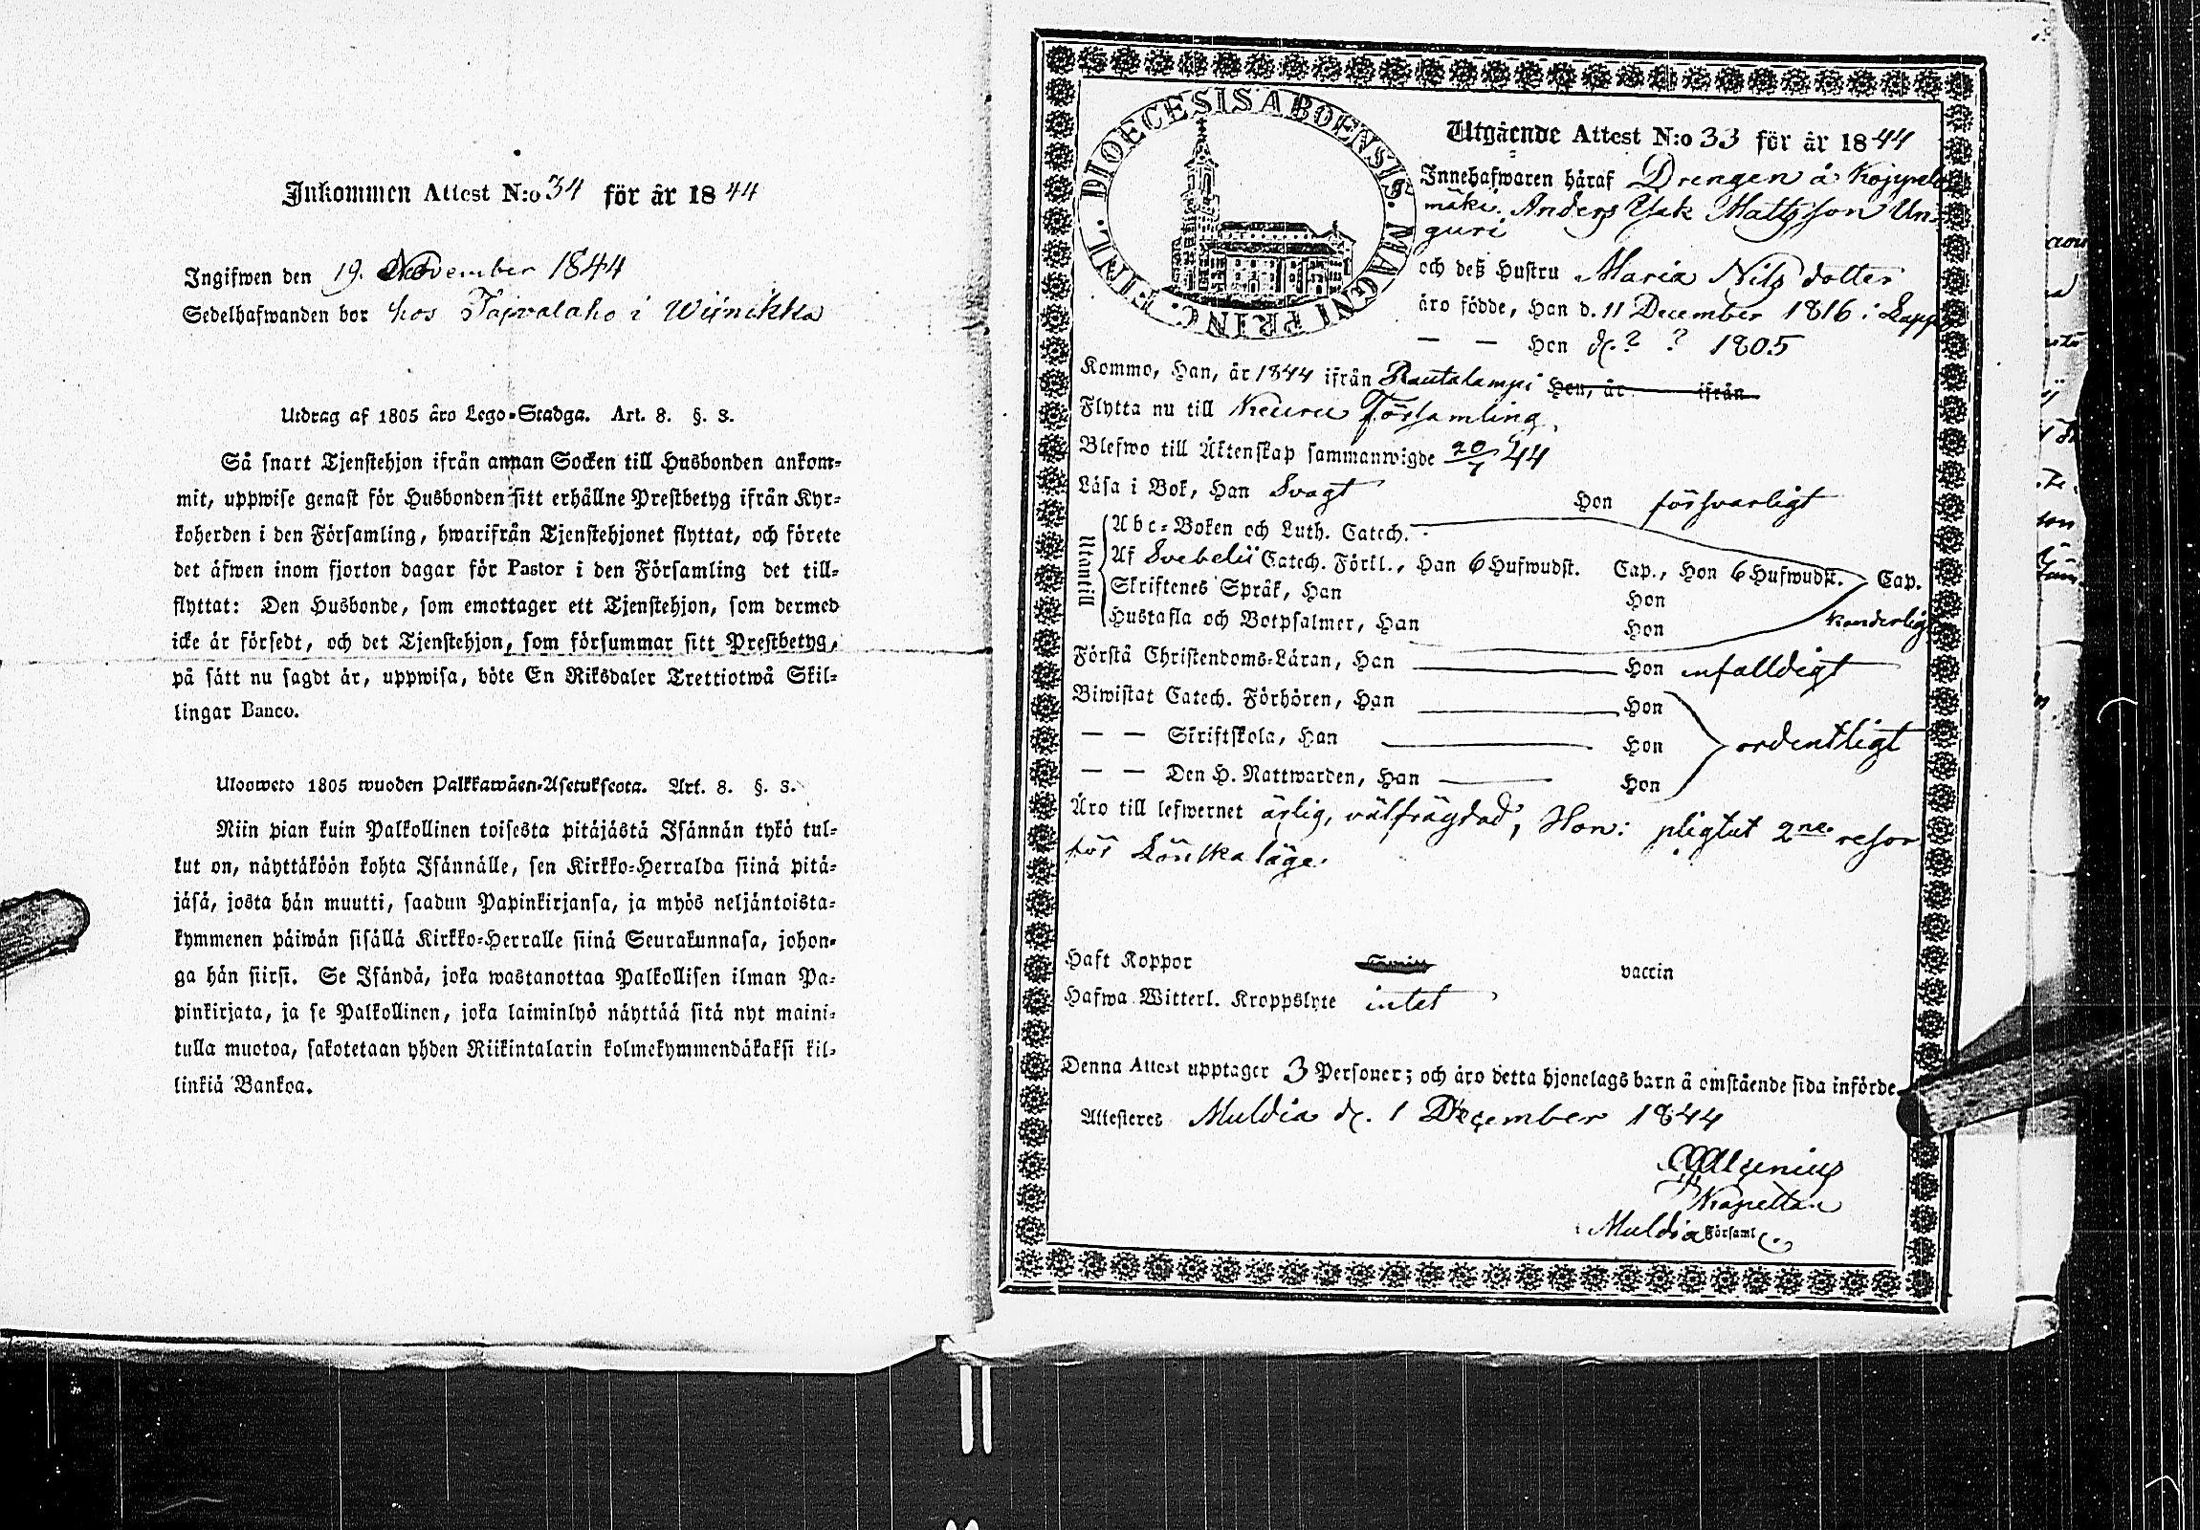 Inkommen Attest N:o 34 för år 1844
Ingifwen den 19. November 1844
Sedelhafwanden bor hos Tajvalaho i Wijnikka
Utdrag af 1805 års Lego-Stadga. Art. 8. §. 3.
Så snart Tjenstehjon ifrån annan Socken till Husbonden ankom-
mit, uppwise genast för Husbonden sitt erhållne Prestbetyg ifrån Kyr-
koherden i den Församling, hwarifrån Tjenstehjonet flyttat, och förete
det äfwen inom fjorton dagar för Pastor i den Församling det till-
flyttat: Den Husbonde, som emottager ett Tjenstehjon, som dermed
icke är försedt, och det Tjenstehjon, som försummar sitt Prestbetyg,
på sätt nu sagdt är, uppwisa, böte En Riksdaler Trettiotwå Skil-
lingar Banco.
Uloosweto 1805 wuoden Palkkawäen-Asetuksesta. Art. 8. §. 3.
Niin pian kuin Palkollinen toisesta pitäjästä Isännän tykö tul-
lut on, näyttäköön kohta Isännälle, sen Kirkko-Herralda siinä pitä-
jäsä, josta hän muutti, saadun Papinkirjansa, ja myös neljäntoista-
kymmenen päiwän sisällä Kirkko-Herralle siinä Seurakunnasa, johon-
ga hän siirsi. Se Isändä, joka wastanottaa Palkollisen ilman Pa-
pinkirjata, ja se Palkollinen, joka laiminlyö näyttää sitä nyt maini-
tulla muotoa, sakotetaan yhden Riikintalarin kolmekymmendäkaksi kil-
linkiä Bankoa.
DIOECESIS ABOENSIS. MAGNI PRINC. FINL.
Utgående Attest N:o 33 för år 1844
Innehafwaren häraf Drengen å Koppelo
mäki. Anders Isak Mattsson Un-
guri
och deß Hustru Maria Nils dotter
äro födde, Han d. 11 December 1816 i Lapp
— — Hon d. ? ? 1805
Kommo, Han, år 1844 ifrån Rautalampi Hon, år ifrån
Flytta nu till Keuru Församling,
Blefwo till Äktenskap sammanwigde 20/7 44
Läsa i Bok, Han Svagt Hon försvarligt
Utantill
Abc-Boken och Luth. Catech.
Af Svebelii Catech. Förkl., Han 6 Hufwudst. Cap., Hon 6 Hufwudst. Cap.
Skriftenes Språk, Han Hon
Hustafla och Botpsalmer, Han Hon
Förstå Christendoms-Läran, Han Hon enfalldigt
Biwistat Catech. Förhören, Han Hon
— — Skriftskola, Han Hon ordentligt
— — Den H. Nattwarden, Han Hon
Äro till lefwernet ärlig, välfrägdad, Hon: pligtat 2ne resor
för Lönskaläge.
Haft Koppor vaccin
Hafwa Witterl. Kroppslyte intet
Denna Attest upptager 3 Personer; och äro detta hjonelags barn å omstående sida införde
Attesteres Muldia d. 1 December 1844
Kapellan
i Muldia Församl